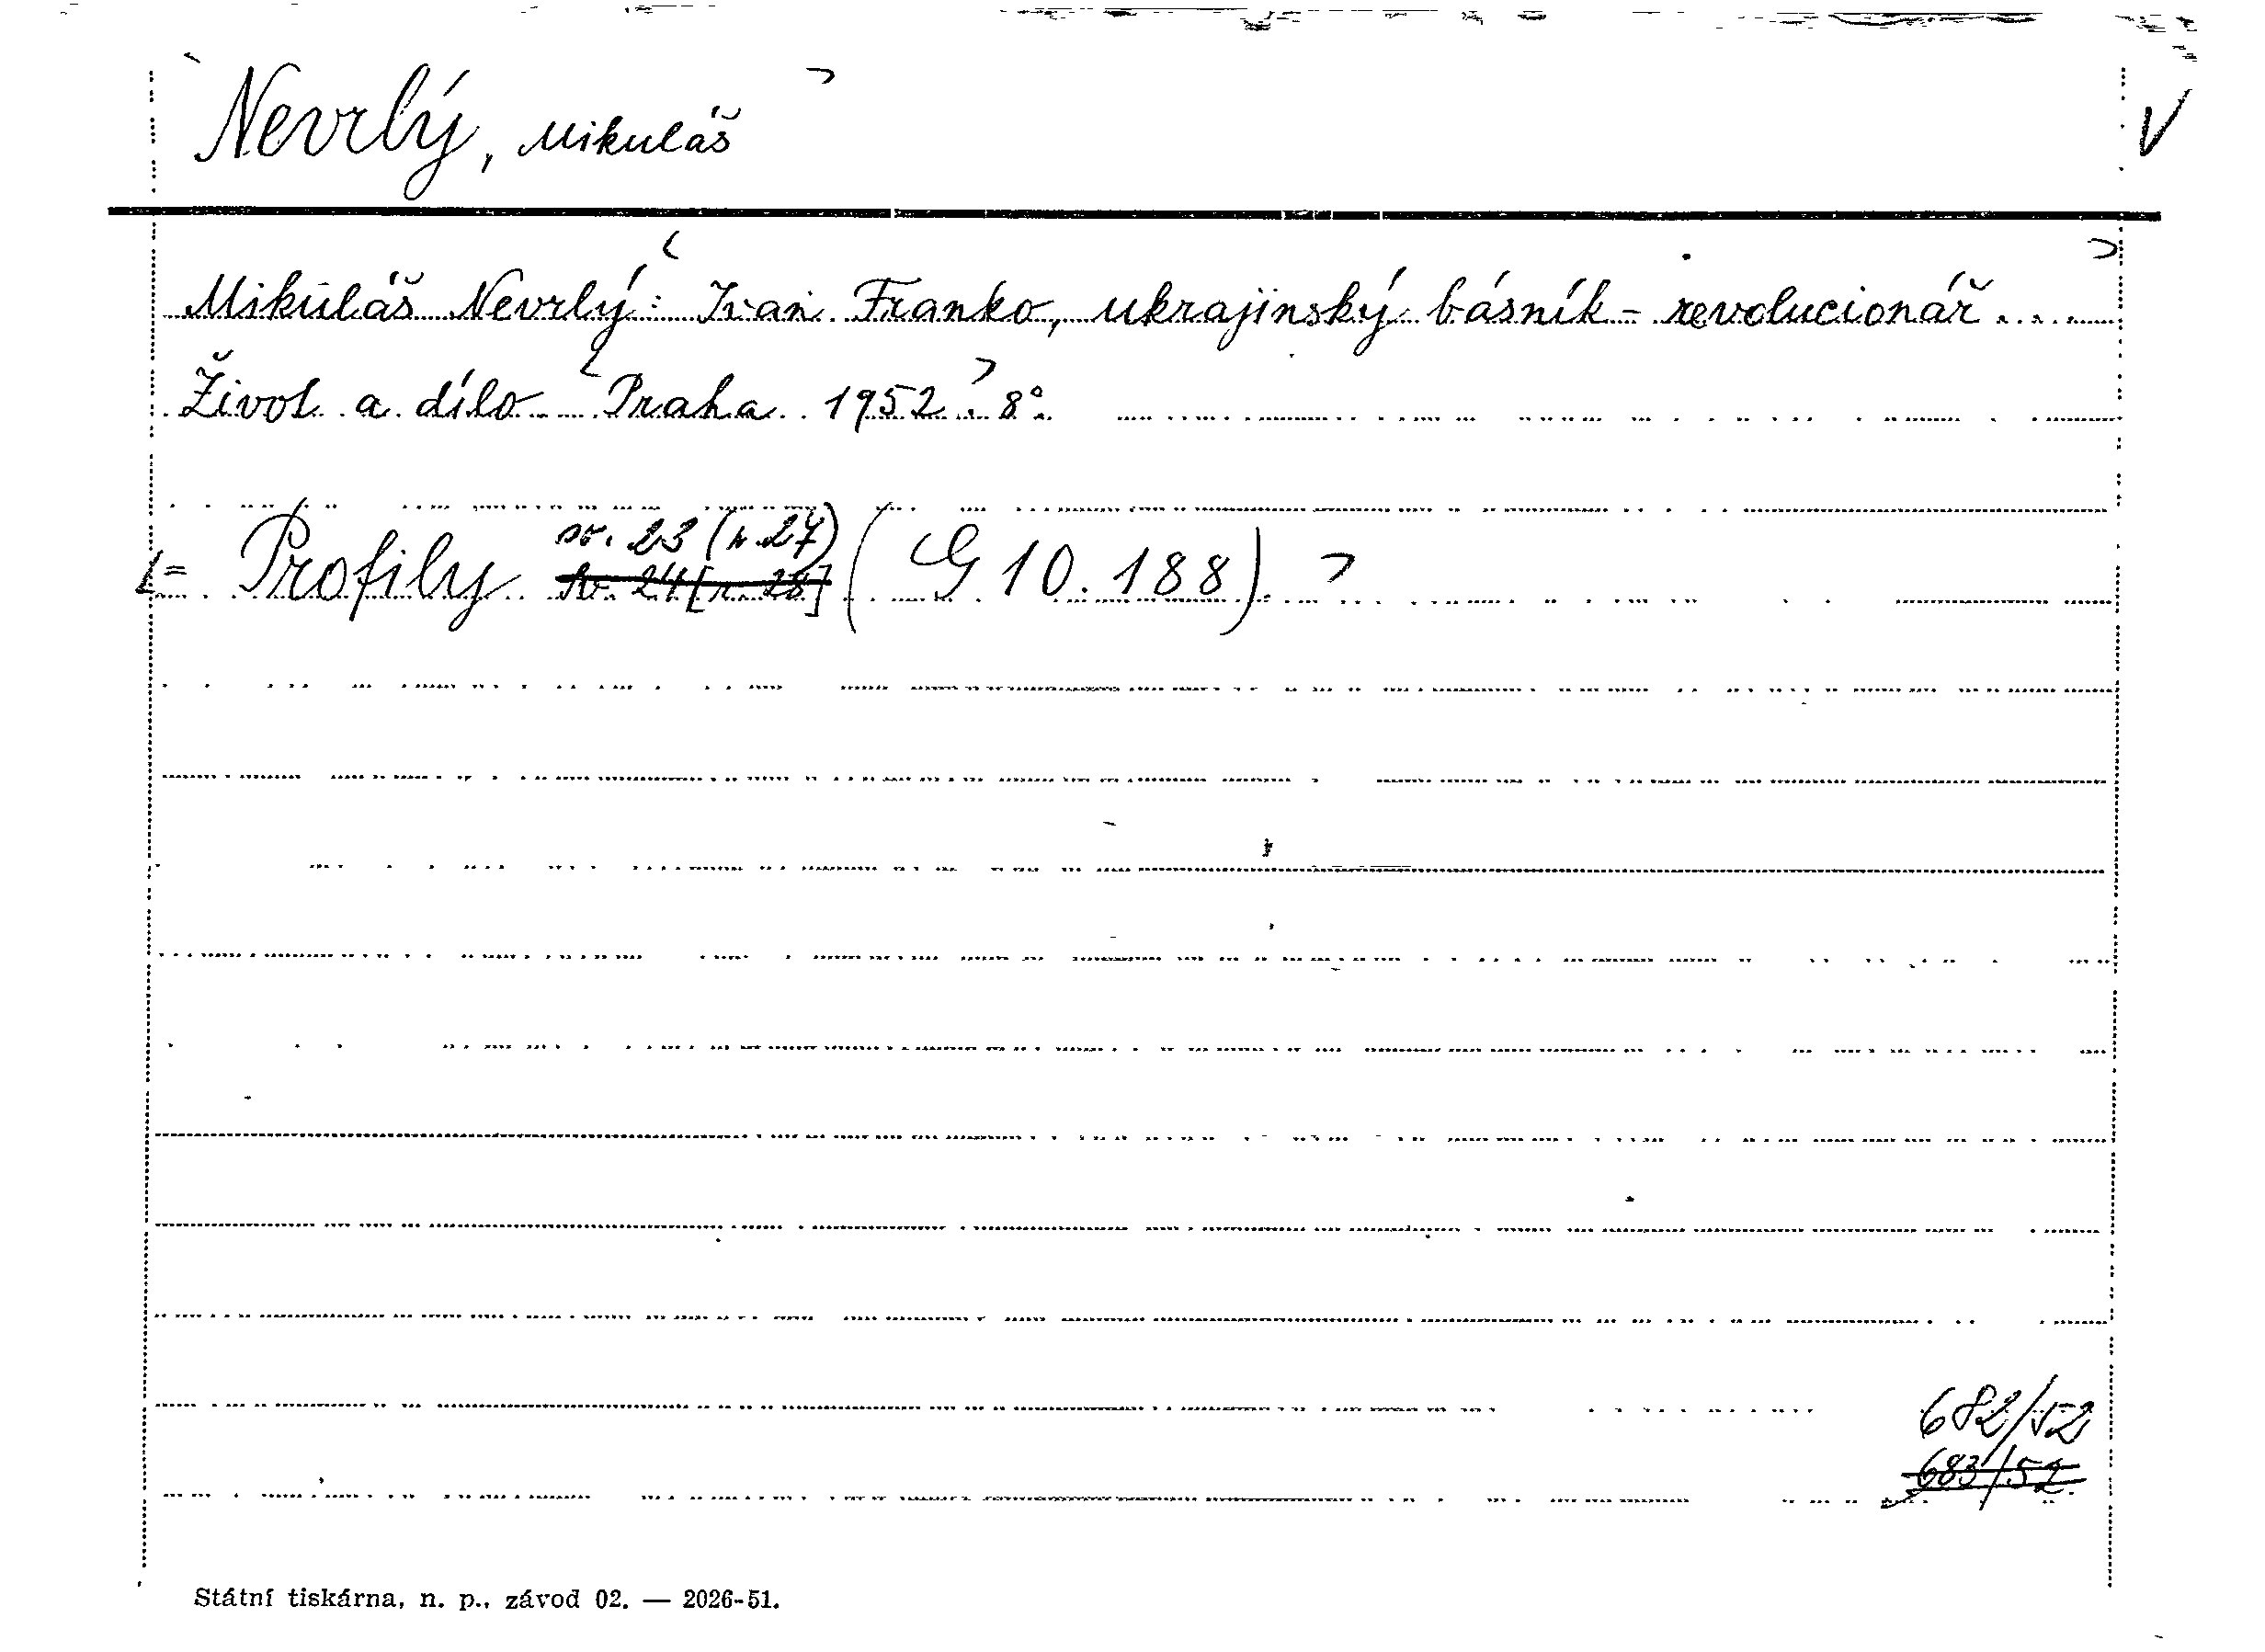 Nevrlý, Mikuláš
V
Mikuláš Nevrlý: Ivan Franko, ukrajinský básník-revolucionář....
Život a dílo - Praha 1952. 8°.
sv. 23 (r. 27)
= Profily sv. 24 [r. 28] (G 10.188).
682/52
683/52.
Státní tiskárna, n. p., závod 02. — 2026-51.